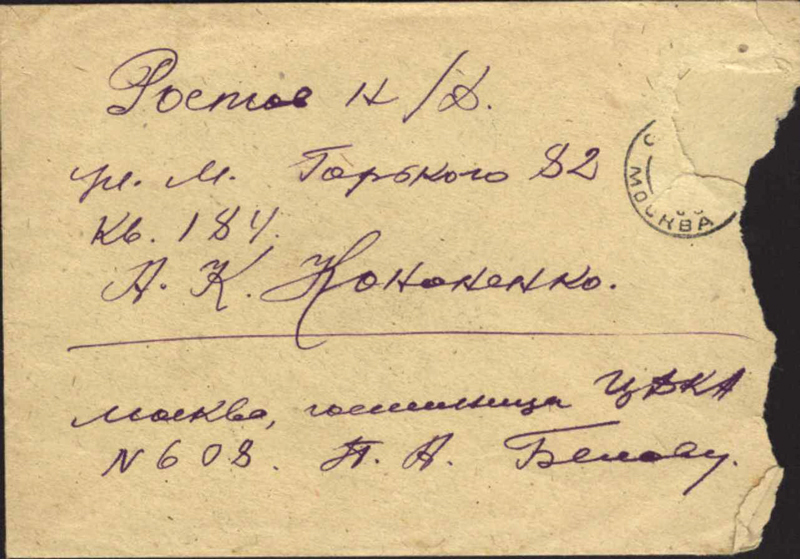 Ростов н/Д.
ул. М. Горького 82
кв. 184.
А. К. Кононенко.
МОСКВА
Москва, гостиница ЦДКА
N 608. П. А. Белову.